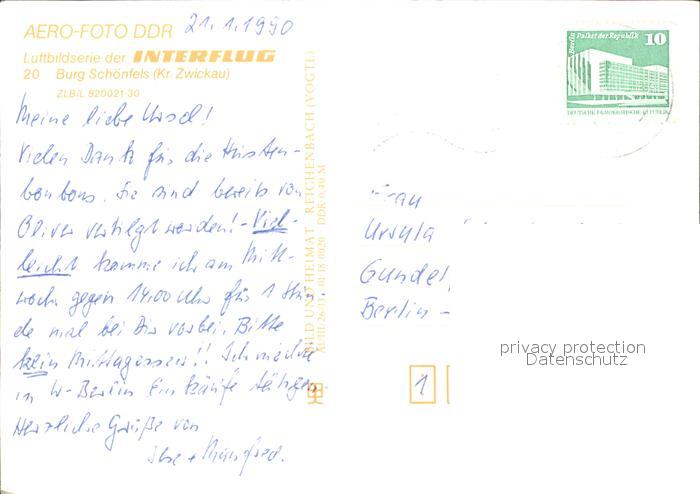 AERO-FOTO DDR 21.1.1990
Luftbildserie der INTERFLUG
20 Burg Schönfels (Kr. Zwickau)
ZLB/L 820021-30
Meine liebe Ursel!
Vielen Dank für die Husten-
bonbons. Sie sind bereits von
Oliver vertilgt worden! - Viel-
leicht komme ich am Mitt-
woch gegen 14.00 Uhr für 1 Stun-
de mal bei Dir vorbei. Bitte
kein Mittagessen!! Ich möchte
in W-Berlin Einkäufe tätigen.
Herzliche Grüße von
Ilse + Manfred.
BILD UND HEIMAT REICHENBACH (VOGTL)
DDR 0,40 M
Berlin Palast der Republik
10
DEUTSCHE DEMOKRATISCHE REPUBLIK
Frau
Ursula
Gundel
Berlin -
1
privacy protection
Datenschutz